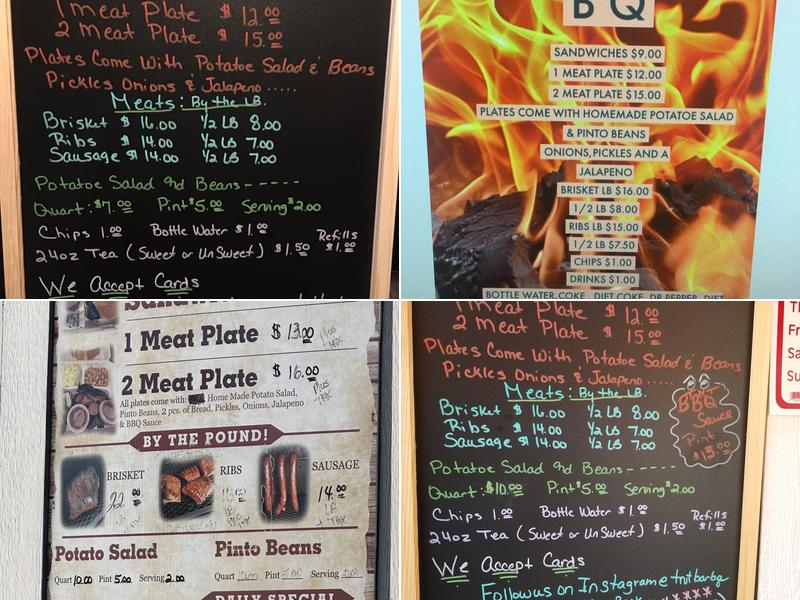 1 Meat Plate $ 12.00
2 Meat Plate $ 15.00
Plates Come With Potatoe Salad & Beans
Pickles Onions & Jalapeno.....
Meats: By the LB.
Brisket $ 16.00 1/2 LB 8.00
Ribs $ 14.00 1/2 LB 7.00
Sausage $ 14.00 1/2 LB 7.00
Potatoe Salad and Beans-----
Quart: $7.00 Pint $5.00 Serving $2.00
Chips 1.00 Bottle Water $1.00 Refills
24oz Tea (Sweet or UnSweet) $1.50 $1.00
We Accept Cards
BQ
SANDWICHES $9.00
1 MEAT PLATE $12.00
2 MEAT PLATE $15.00
PLATES COME WITH HOMEMADE POTATOE SALAD
& PINTO BEANS
ONIONS,PICKLES AND A
JALAPENO
BRISKET LB $16.00
1/2 LB $8.00
RIBS LB $15.00
1/2 LB $7.50
CHIPS $1.00
DRINKS $1.00
BOTTLE WATER,COKE, DIET COKE, DR PEPPER, DIET
1 Meat Plate $ 13.00 Plus TAX
2 Meat Plate $ 16.00
Plus TAX
All plates come with: Home Made Potato Salad,
Pinto Beans, 2 pcs. of Bread, Pickles, Onions, Jalapeno
& BBQ Sauce
BY THE POUND!
BRISKET
RIBS
SAUSAGE
22.00
14.00
LB
+ TAX
Potato Salad
Quart 10.00 Pint 5.00 Serving 2.00
Pinto Beans
Quart Pint Serving
DAILY SPECIAL
1 Meat Plate $ 12.00
2 Meat Plate $ 15.00
Plates Come With Potatoe Salad & Beans
Pickles Onions & Jalapeno.....
Meats: By the LB.
Brisket $ 16.00 1/2 LB 8.00
Ribs $ 14.00 1/2 LB 7.00
Sausage $ 14.00 1/2 LB 7.00
BBQ
Sauce
Pint
$15.00
Potatoe Salad and Beans-----
Quart: $10.00 Pint $5.00 Serving $2.00
Chips 1.00 Bottle Water $1.00 Refills
24oz Tea (Sweet or UnSweet) $1.50 $1.00
We Accept Cards
Follow us on Instagrame tnt barbq
Fr
Sa
Su